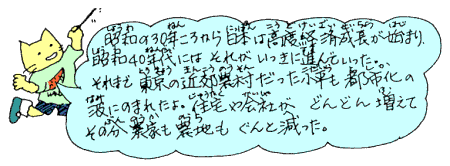 昭和の30年ころから日本は高度経済成長が始まり、
昭和40年代にはそれがいっきに進んでいった。
それまで東京の近郊農村だった小平も都市化の
波にのまれたよ。住宅や会社が、どんどん増えて
その分、農家も農地もぐんと減った。